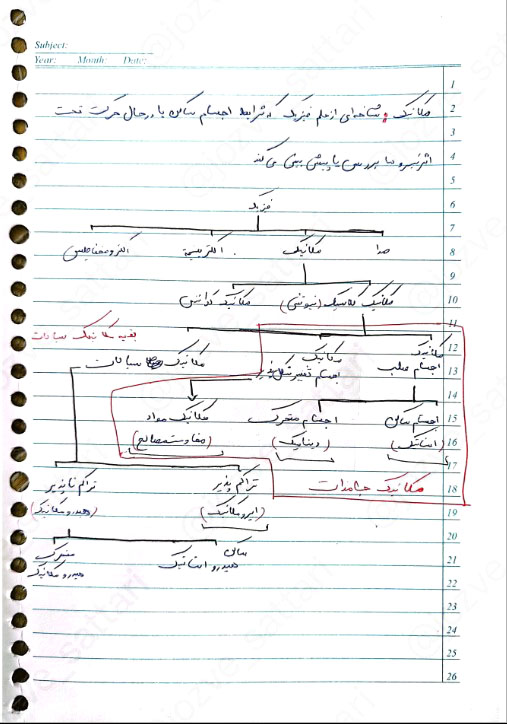 Subject:
Year: Month: Date:
مکانیک: شاخه‌ای از علم فیزیک که شرایط اجسام ساکن یا در حال حرکت تحت
اثر نیرو ها بررسی یا پیش بینی می کند
فیزیک
صدا مکانیک الکتریسیته الکترومغناطیس
مکانیک کلاسیک (نیوتنی) مکانیک کوانتمی
بقیه مکانیک سیالات
مکانیک اجسام صلب مکانیک اجسام تغییر شکل پذیر مکانیک سیالات
اجسام ساکن اجسام متحرک مکانیک مواد
(استاتیک) (دینامیک) (مقاومت مصالح)
مکانیک جامدات تراکم پذیر تراکم ناپذیر
(ایرومکانیک) (هیدرومکانیک)
ساکن متحرک
هیدرو استاتیک هیدرو مکانیک
1
2
3
4
5
6
7
8
9
10
11
12
13
14
15
16
17
18
19
20
21
22
23
24
25
26
@jozve_sattari